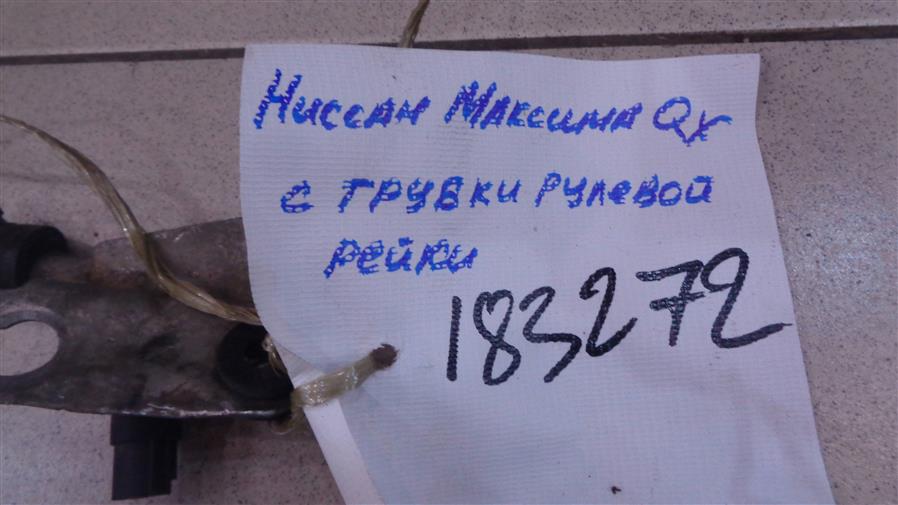 Ниссан Максима QX
с трубки рулевой
рейки
183272